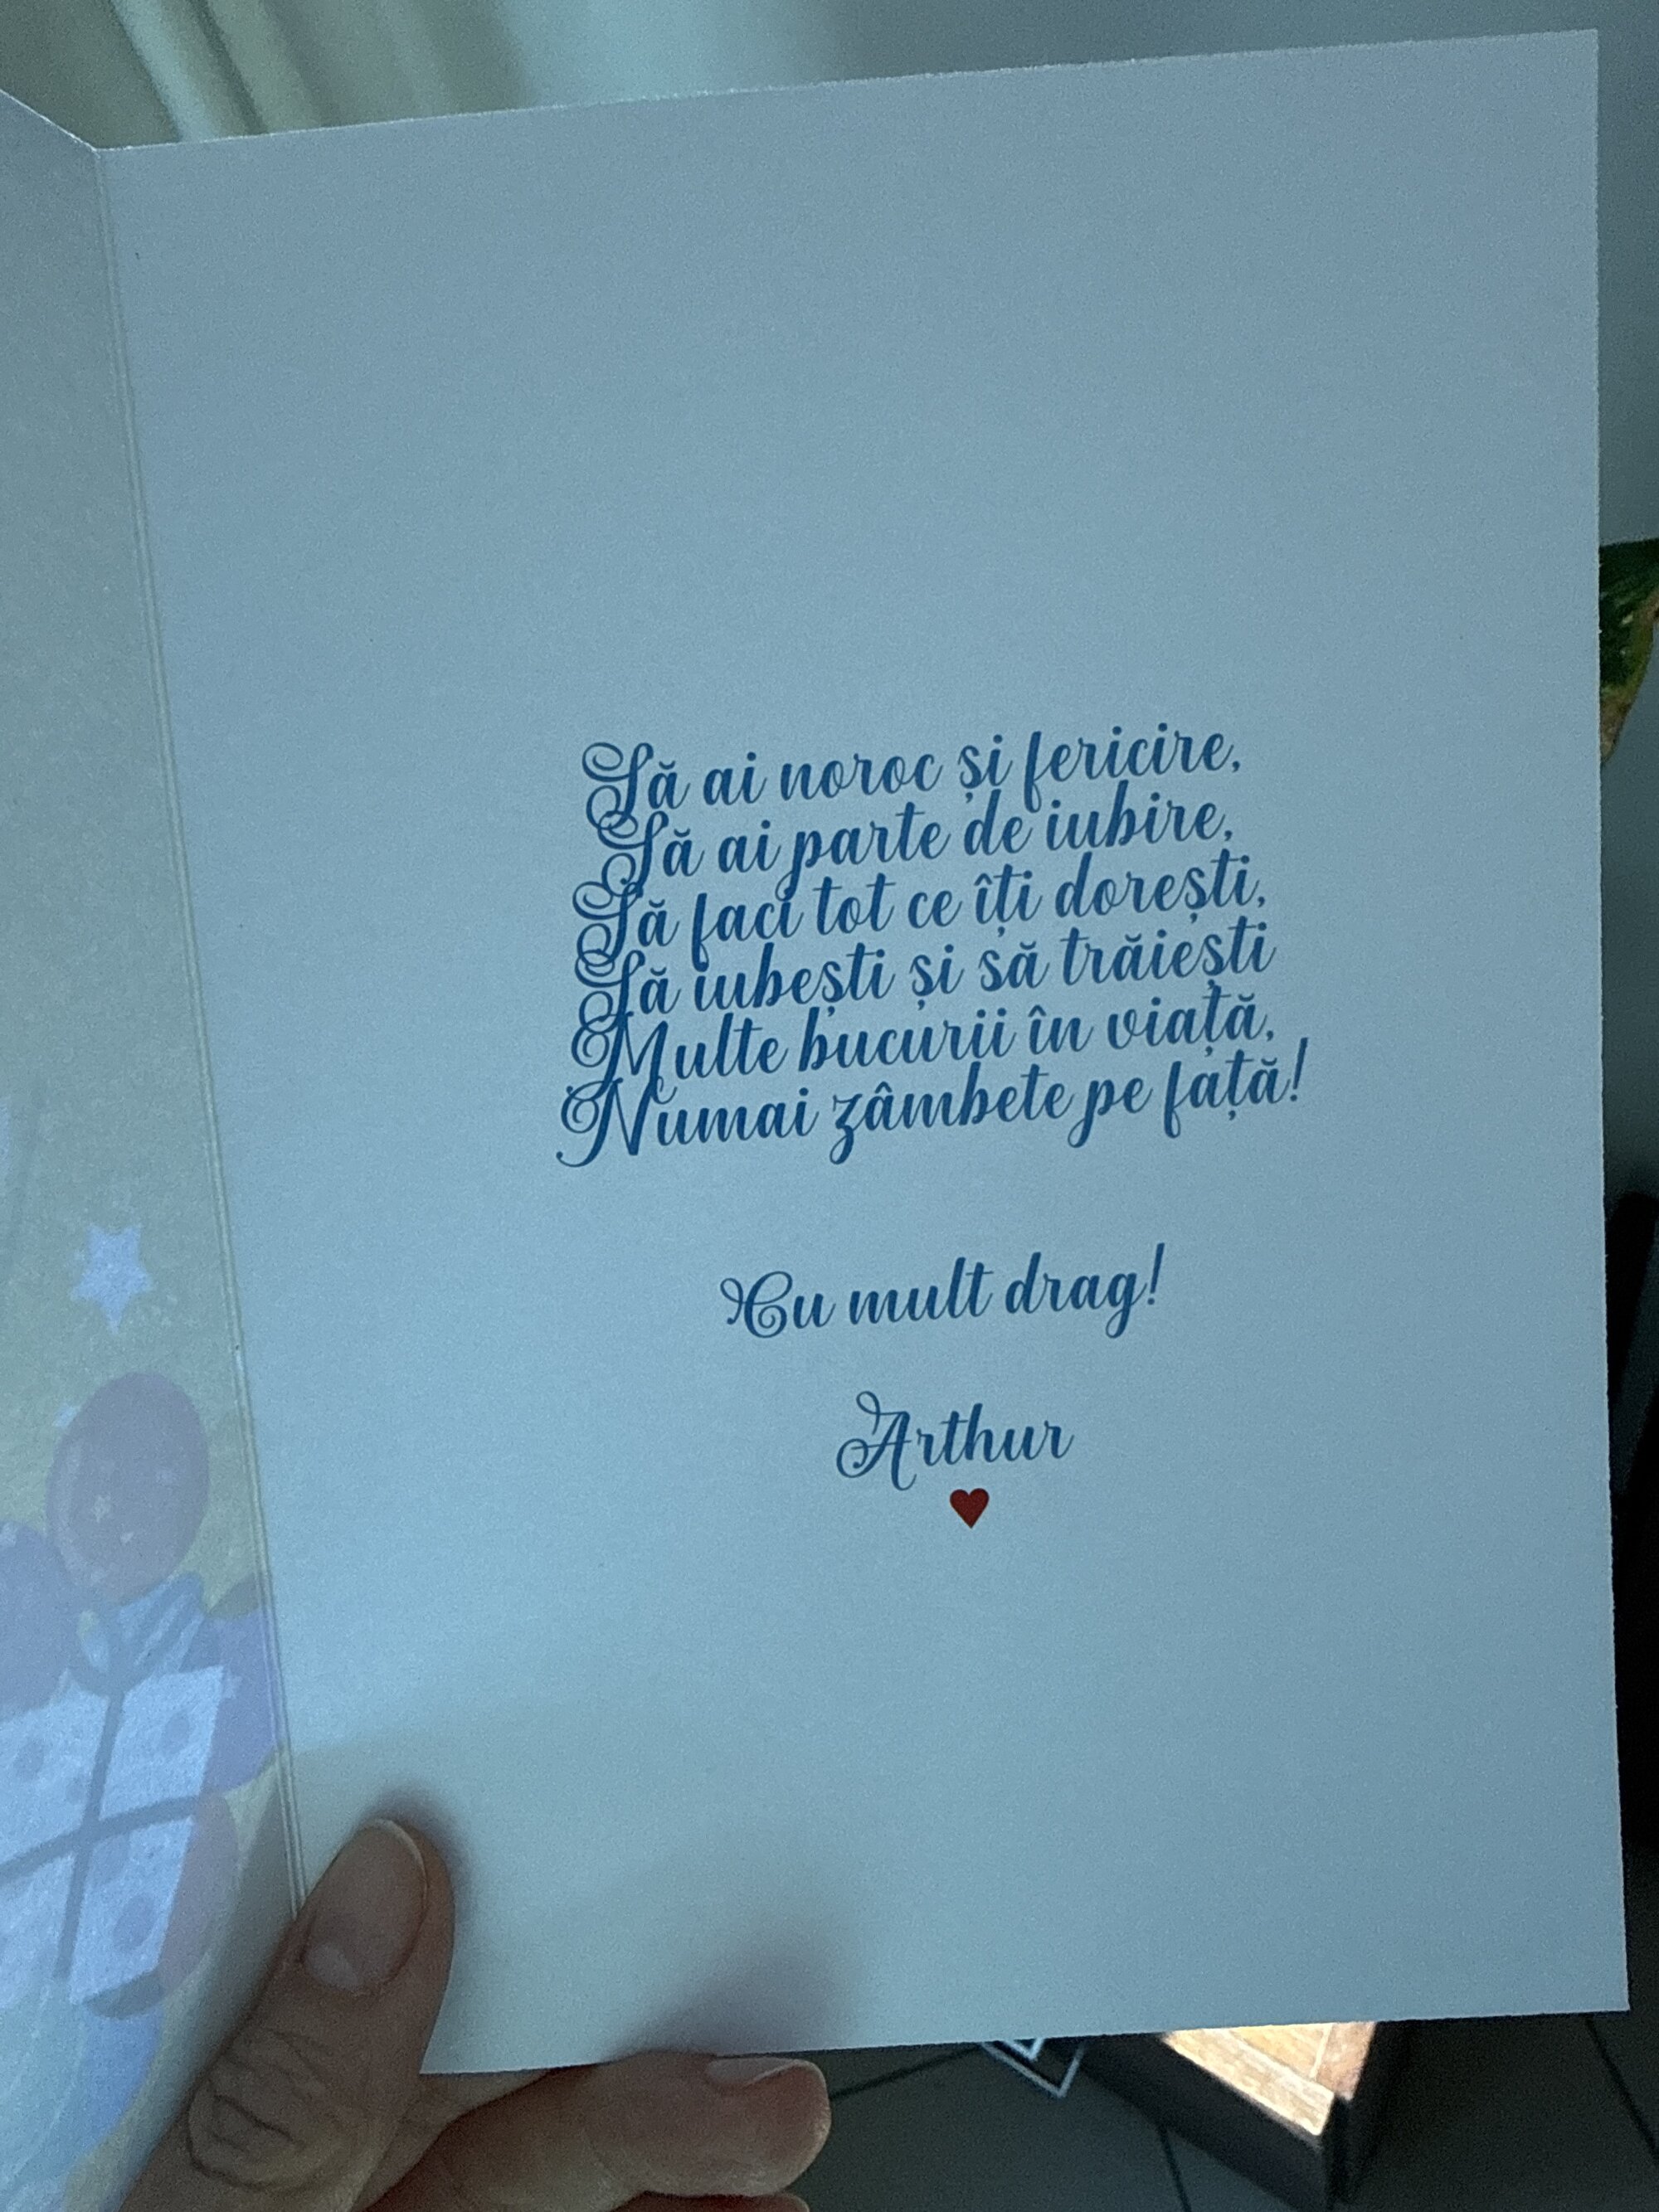 Să ai noroc și fericire,
Să ai parte de iubire,
Să faci tot ce îți dorești,
Să iubești și să trăiești
Multe bucurii în viață,
Numai zâmbete pe față!
Cu mult drag!
Arthur